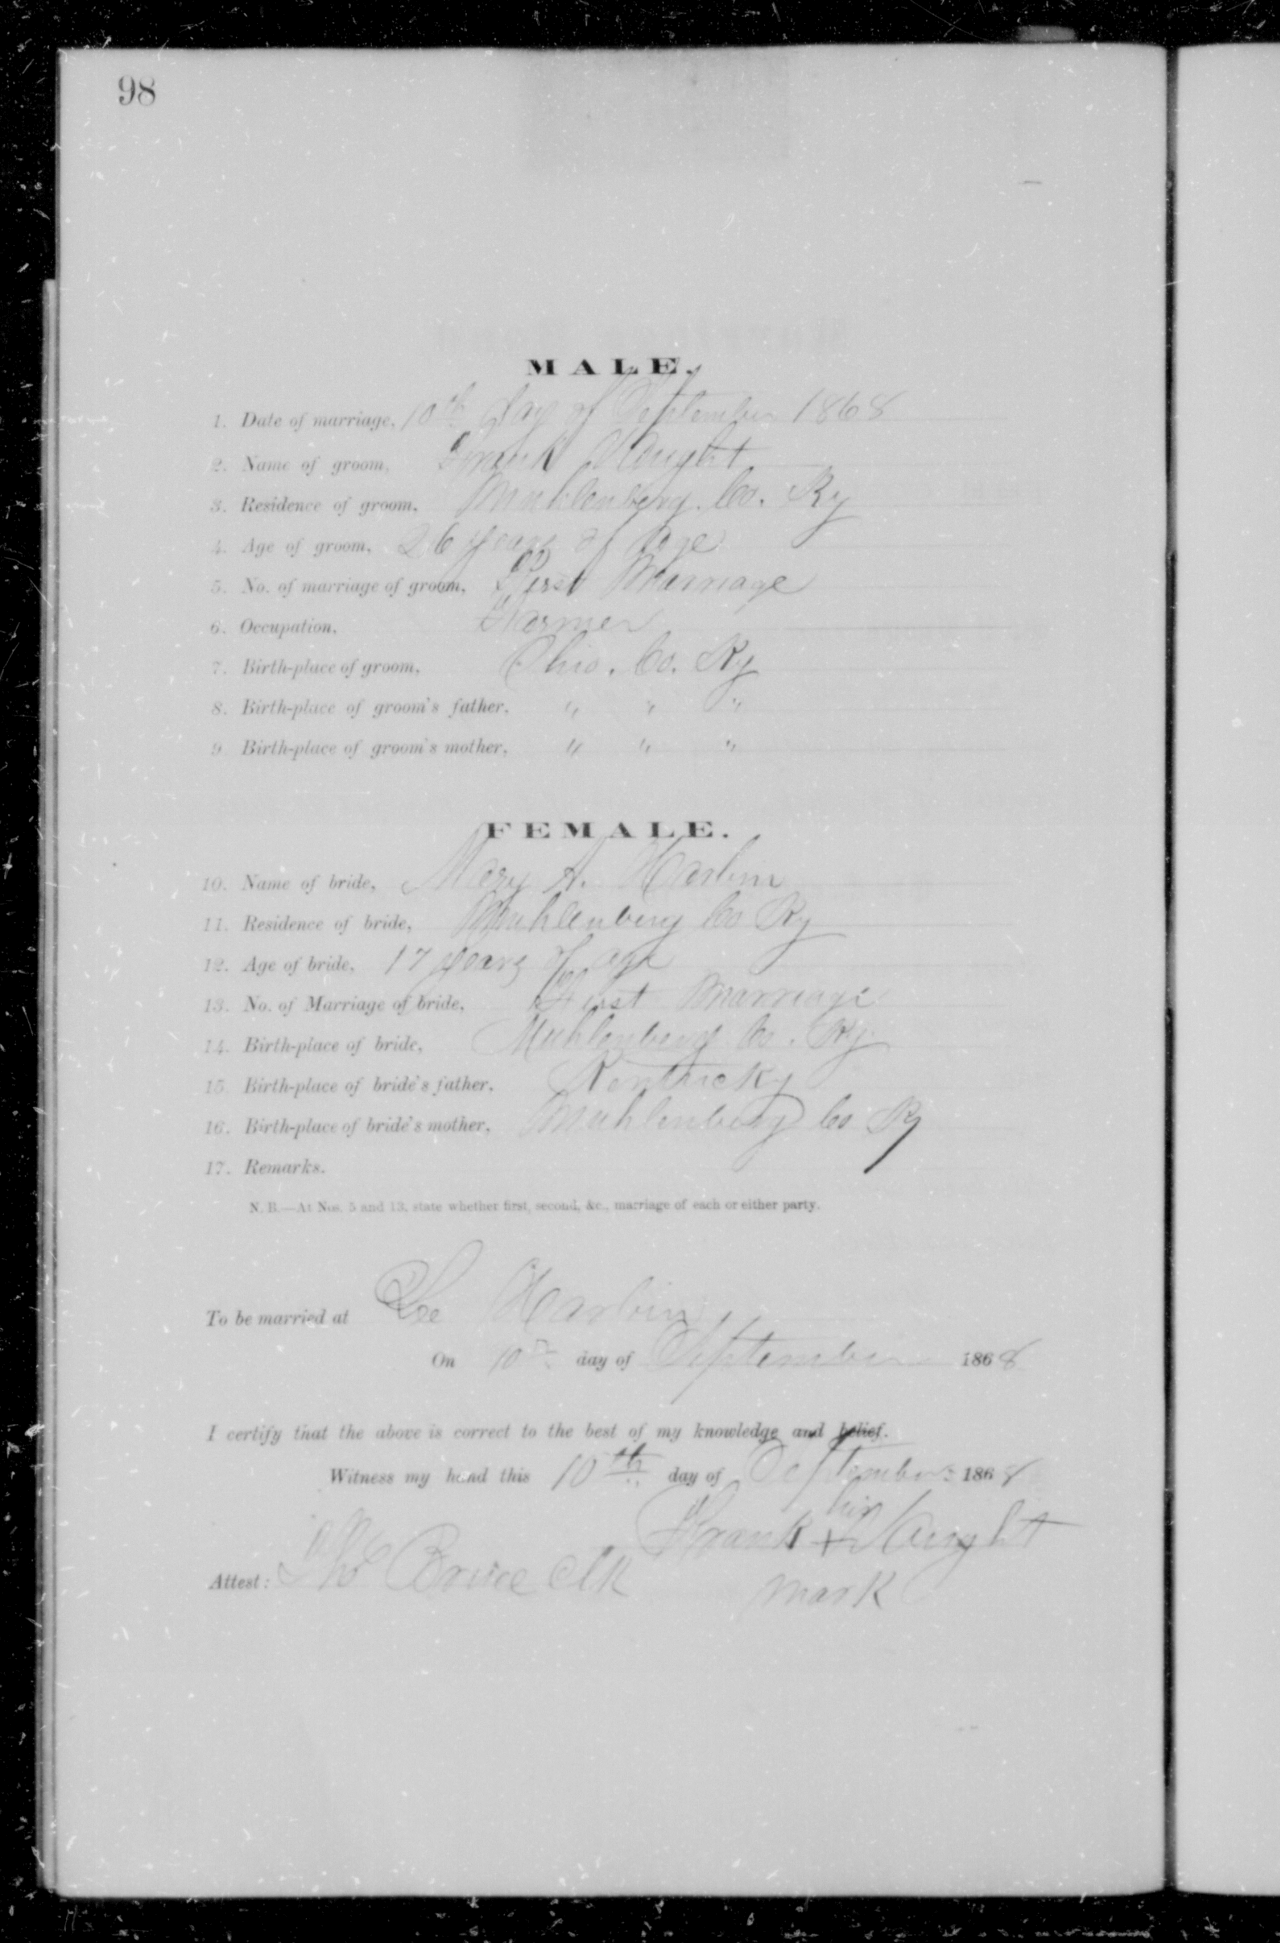 98
MALE.
1. Date of marriage, 10th day of September 1868
2. Name of groom, Frank Vaught
3. Residence of groom, Muhlenberg. Co. Ky
4. Age of groom, 26 years of age
5. No. of marriage of groom, First Marriage
6. Occupation, Farmer
7. Birth-place of groom, Ohio. Co. Ky
8. Birth-place of groom's father, " " "
9. Birth-place of groom's mother, " " "
FEMALE.
10. Name of bride, Mary A. Harbin
11. Residence of bride, Muhlenberg Co Ky
12. Age of bride, 17 years of age
13. No. of Marriage of bride, First Marriage
14. Birth-place of bride, Muhlenberg Co. Ky
15. Birth-place of bride's father, Kentucky
16. Birth-place of bride's mother, Muhlenberg Co Ky
17. Remarks.
N. B.—At Nos. 5 and 13, state whether first, second, &c., marriage of each or either party.
To be married at Lee Harbins
On 10th day of September 1868
I certify that the above is correct to the best of my knowledge and belief.
Witness my hand this 10th day of September 1868
his
Frank + Vaught
Attest: Bruce Clk
mark